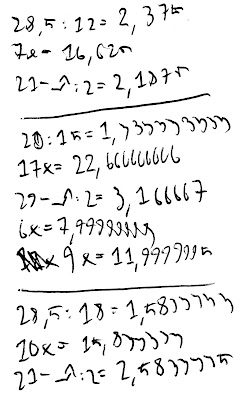 28,5:12=2,375
7x=16,625
21-Л:2=2,1875
20:15=1,333333333
17x=22,666666666
29-Л:2=3,166667
6x=7,99999999
9x=11,9999995
28,5:18=1,5833333
10x=15,833333
21-Л:2=2,5833335